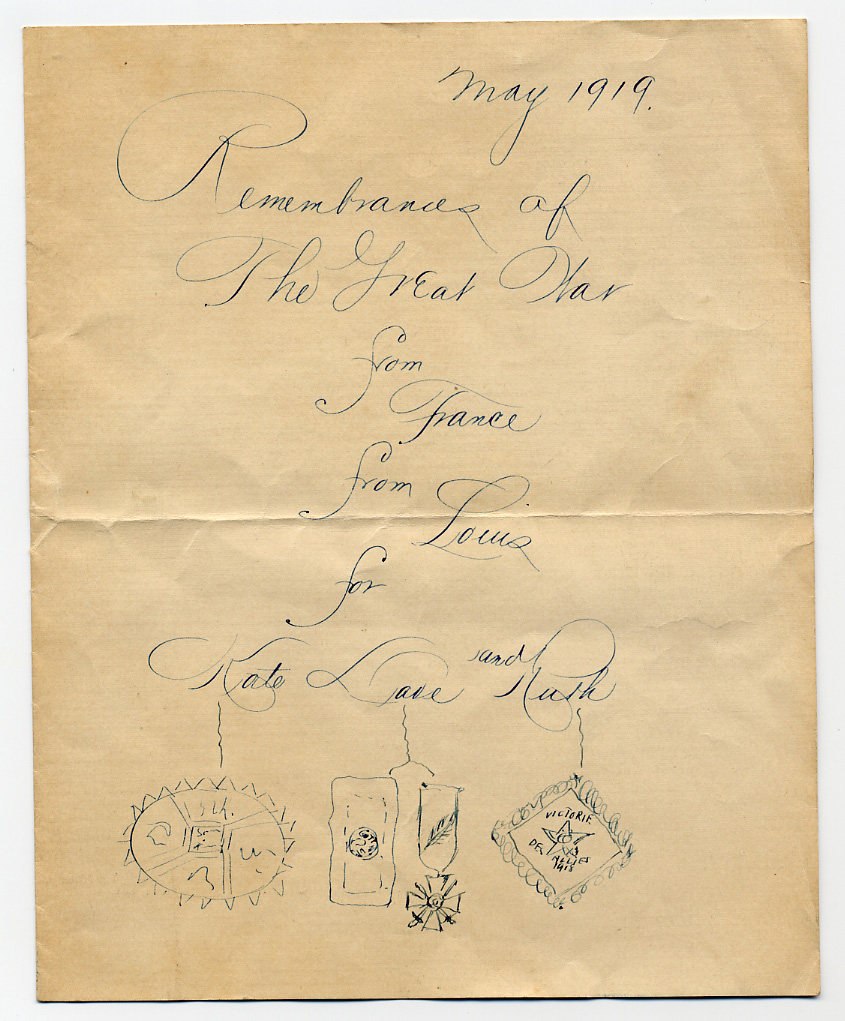 May 1919.
Remembrances of
The Great War
from
France
from
Louis
for
Kate Dave and Ruth
VICTORIE
DES
ALLIES
1918